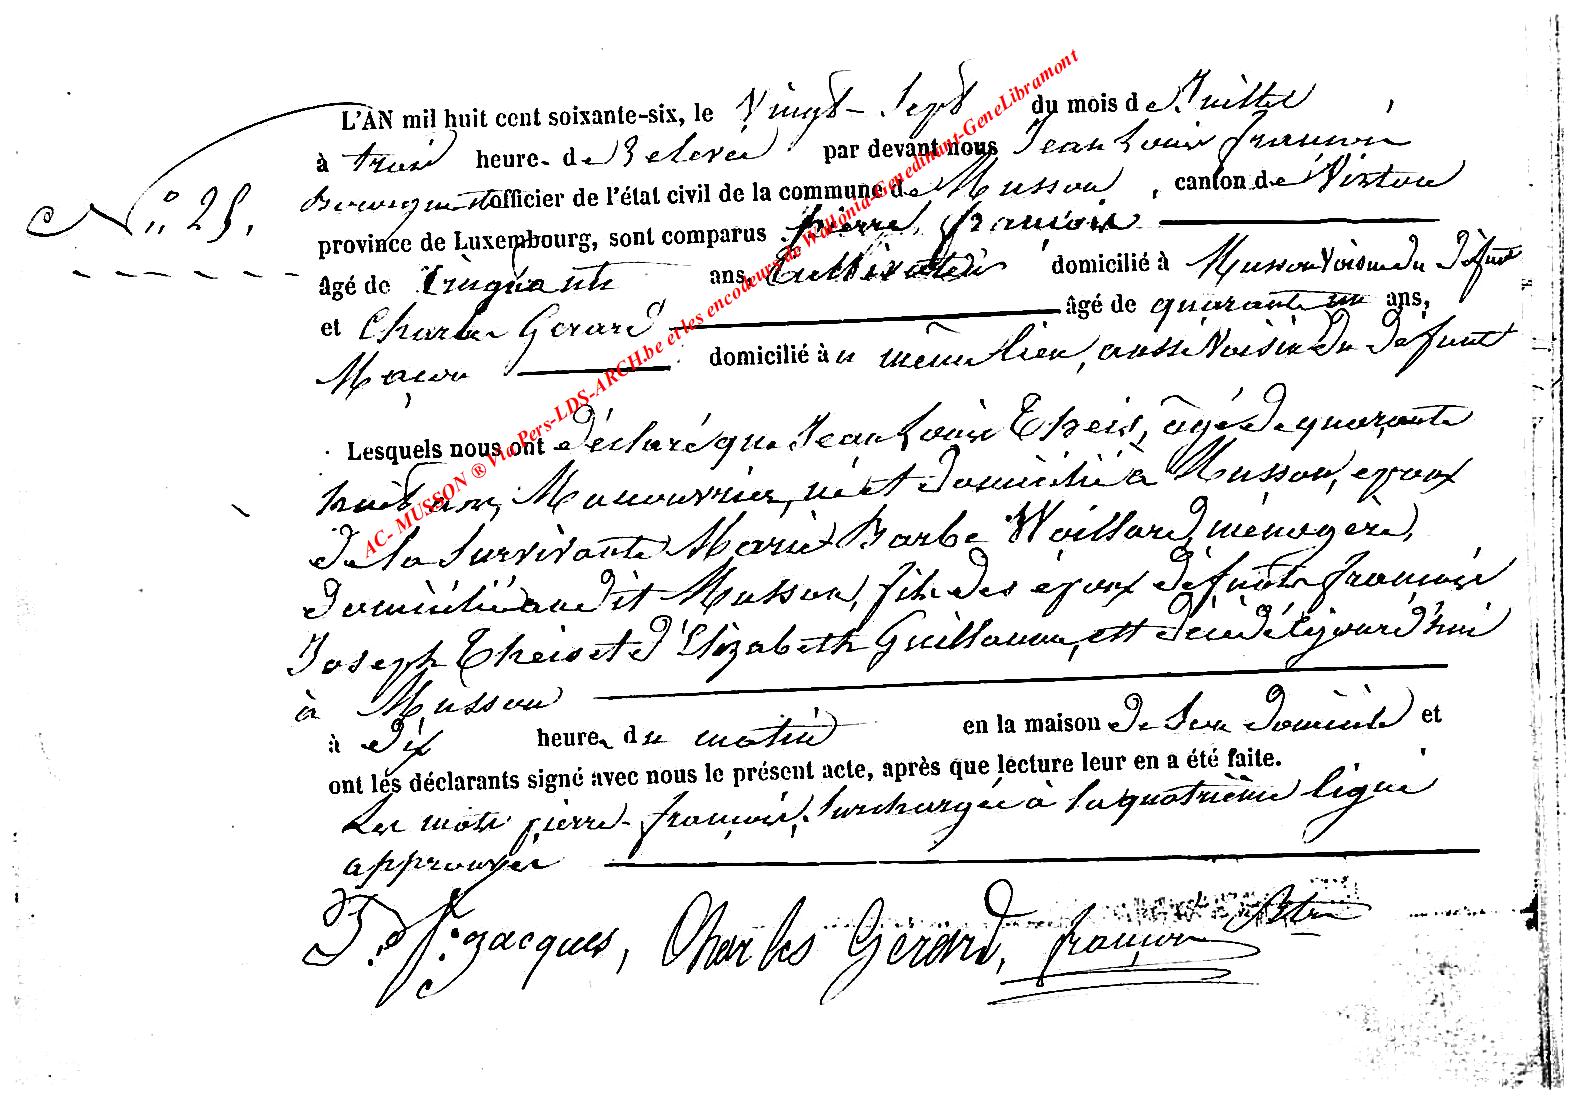 L'AN mil huit cent soixante-six, le Vingt-Sept du mois de Juillet
à trois heures de relevée par devant nous Jean Louis François
N.o 25. Bourgmestre officier de l'état civil de la commune de Musson, canton de Virton
province de Luxembourg, sont comparus pierre, françois
âgé de Cinquante ans, Cultivateur domicilié à Musson voisin du défunt
et Charles Gerard âgé de quarante un ans,
Maçon domicilié au même lieu, aussi Voisin du défunt
Lesquels nous ont déclaré que Jean Louis Theis, âgé de quarante
huit ans, Manouvrier, né et domicilié à Musson, époux
de la Survivante Marie Barbe Waillard, ménagère,
domiciliée audit Musson, fils des époux défunts françois
Joseph Theis et d'Elizabeth Guillaume, est décédé cejourd'hui
à Musson
à dix heures du matin en la maison de son domicile et
ont les déclarants signé avec nous le présent acte, après que lecture leur en a été faite.
Les mots pierre-françois, surchargée à la quatrième ligne
approuvée
Jacques, Charles Gerard, françois
AC- MUSSON ® Via Pers-LDS-ARCH.be et les encodeurs de Wallonia-Genedinant-GeneLibramont